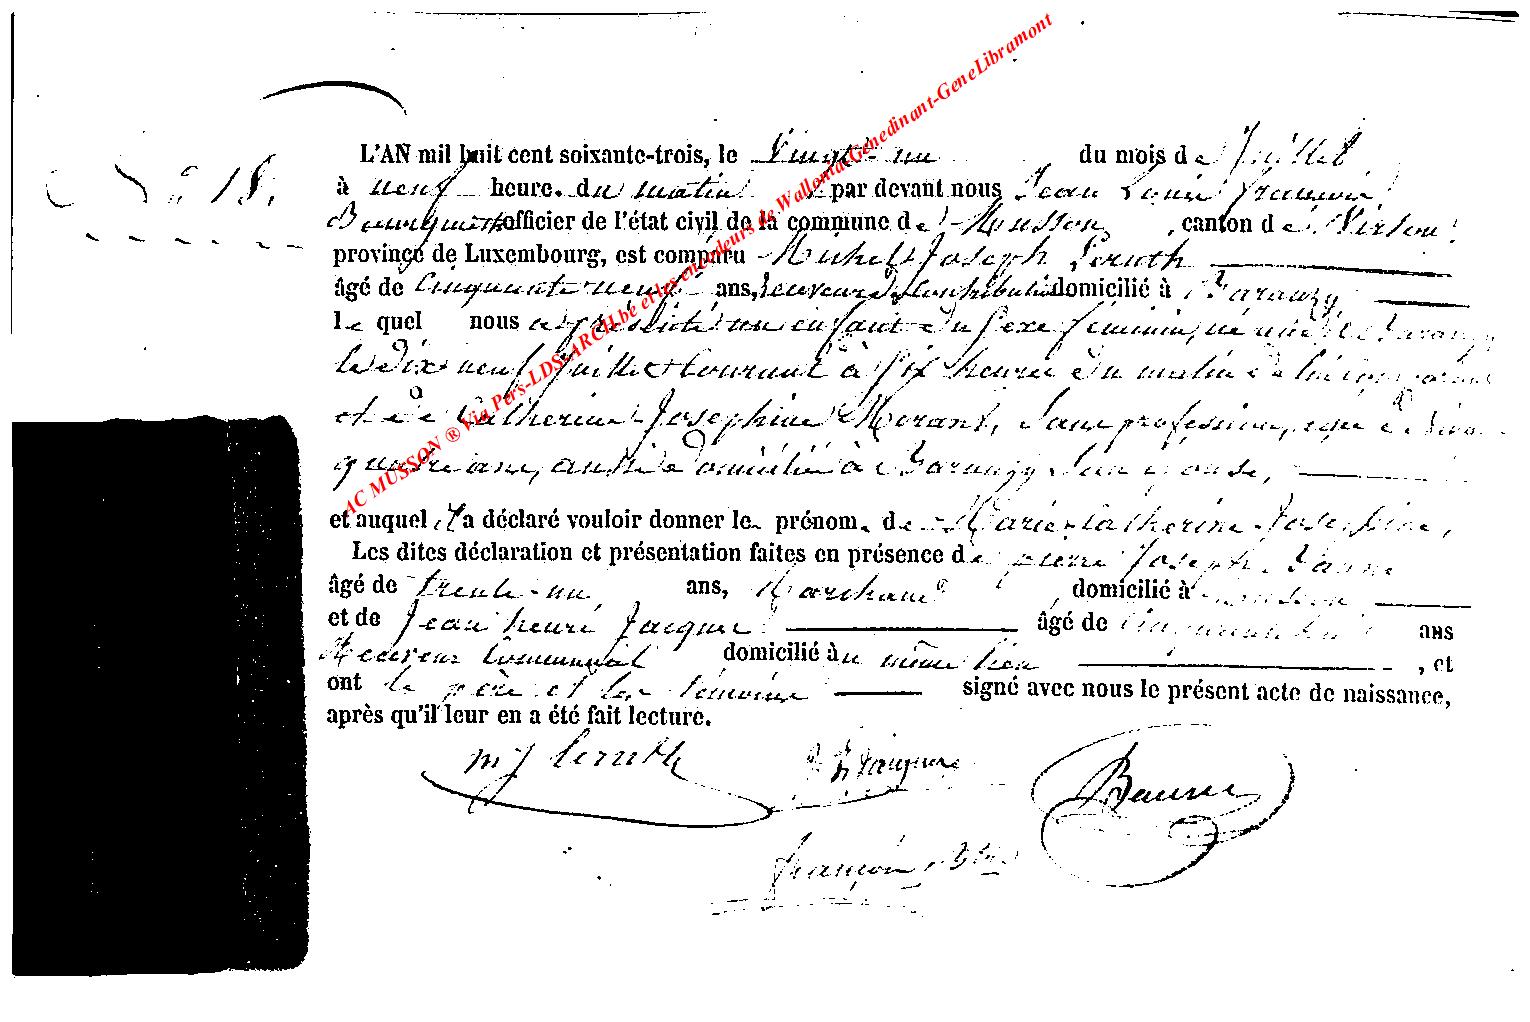 AC MUSSON ® Via Pers-LDS-ARCH.be et les encodeurs de Wallonia-Genedinant-GeneLibramont
N° 18.
L'AN mil huit cent soixante-trois, le Vingt-un du mois de Juillet
à neuf heure. du matin par devant nous Jean Louis François
officier de l'état civil de la commune de Musson, canton de Virton,
province de Luxembourg, est comparu Michel Joseph Leruth
âgé de Cinquante neuf ans, receveur de Contributions domicilié à Baranzy
lequel nous a présenté un enfant du sexe féminin, né à Baranzy
le dix neuf Juillet courant à six heures du matin de lui
et de Catherine Josephine Morant, sans profession, agée de
quatre ans, aussi domiciliée à Baranzy son épouse,
et auquel il a déclaré vouloir donner le prénom. de Marie-Catherine Josephine,
Les dites déclaration et présentation faites en présence de pierre Joseph
âgé de trente-un ans, Marchand, domicilié à Musson,
et de Jean henri Jacques âgé de ans
Receveur Communal domicilié au même lieu, et
ont le père et les témoins signé avec nous le présent acte de naissance,
après qu'il leur en a été fait lecture.
mj leruth